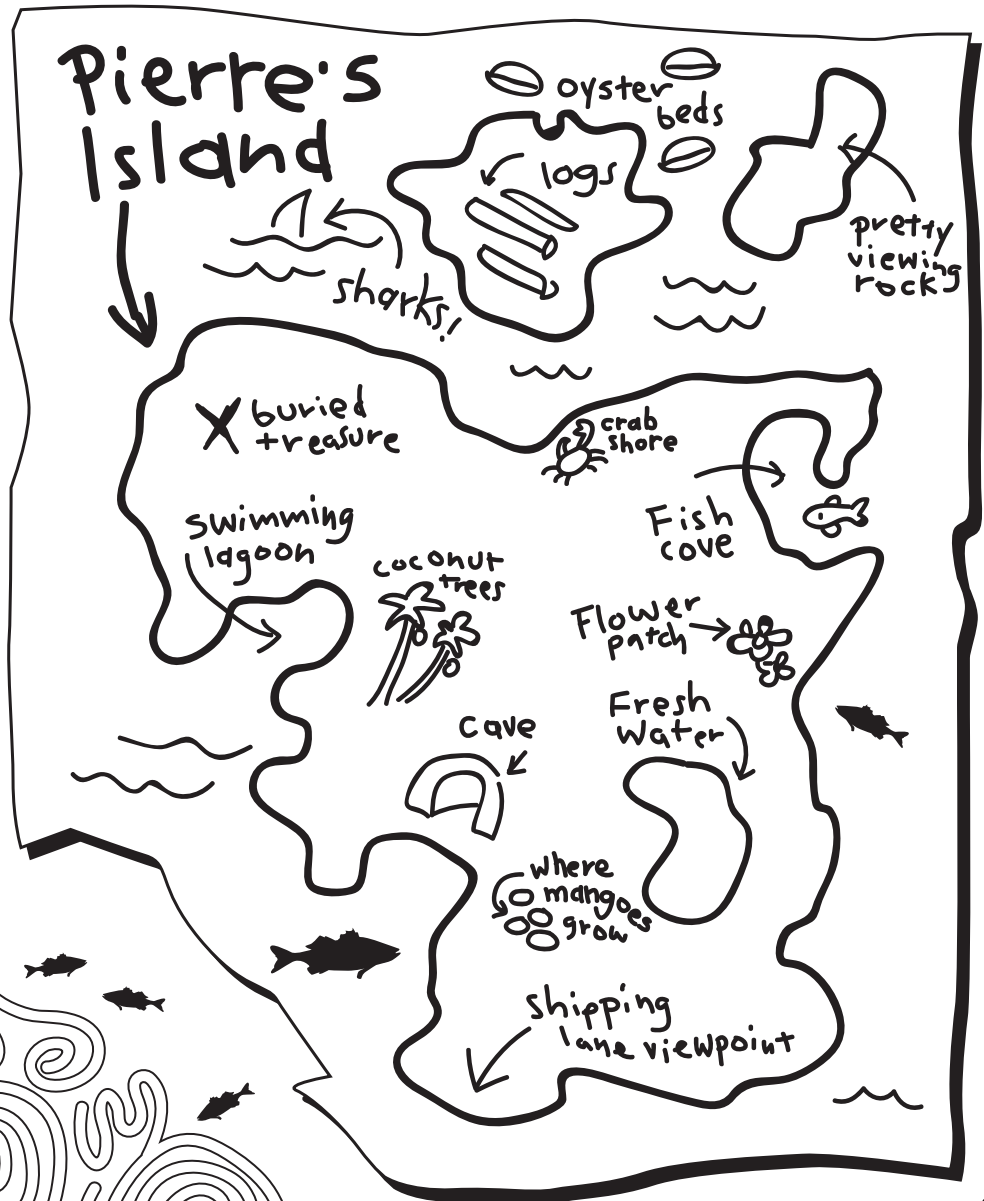 Pierre's
Island
oyster
beds
logs
pretty
viewing
rock
sharks!
buried
treasure
crab
shore
swimming
lagoon
Fish
cove
coconut
trees
Flower
patch
Fresh
Water
cave
where
mangoes
grow
shipping
lane viewpoint